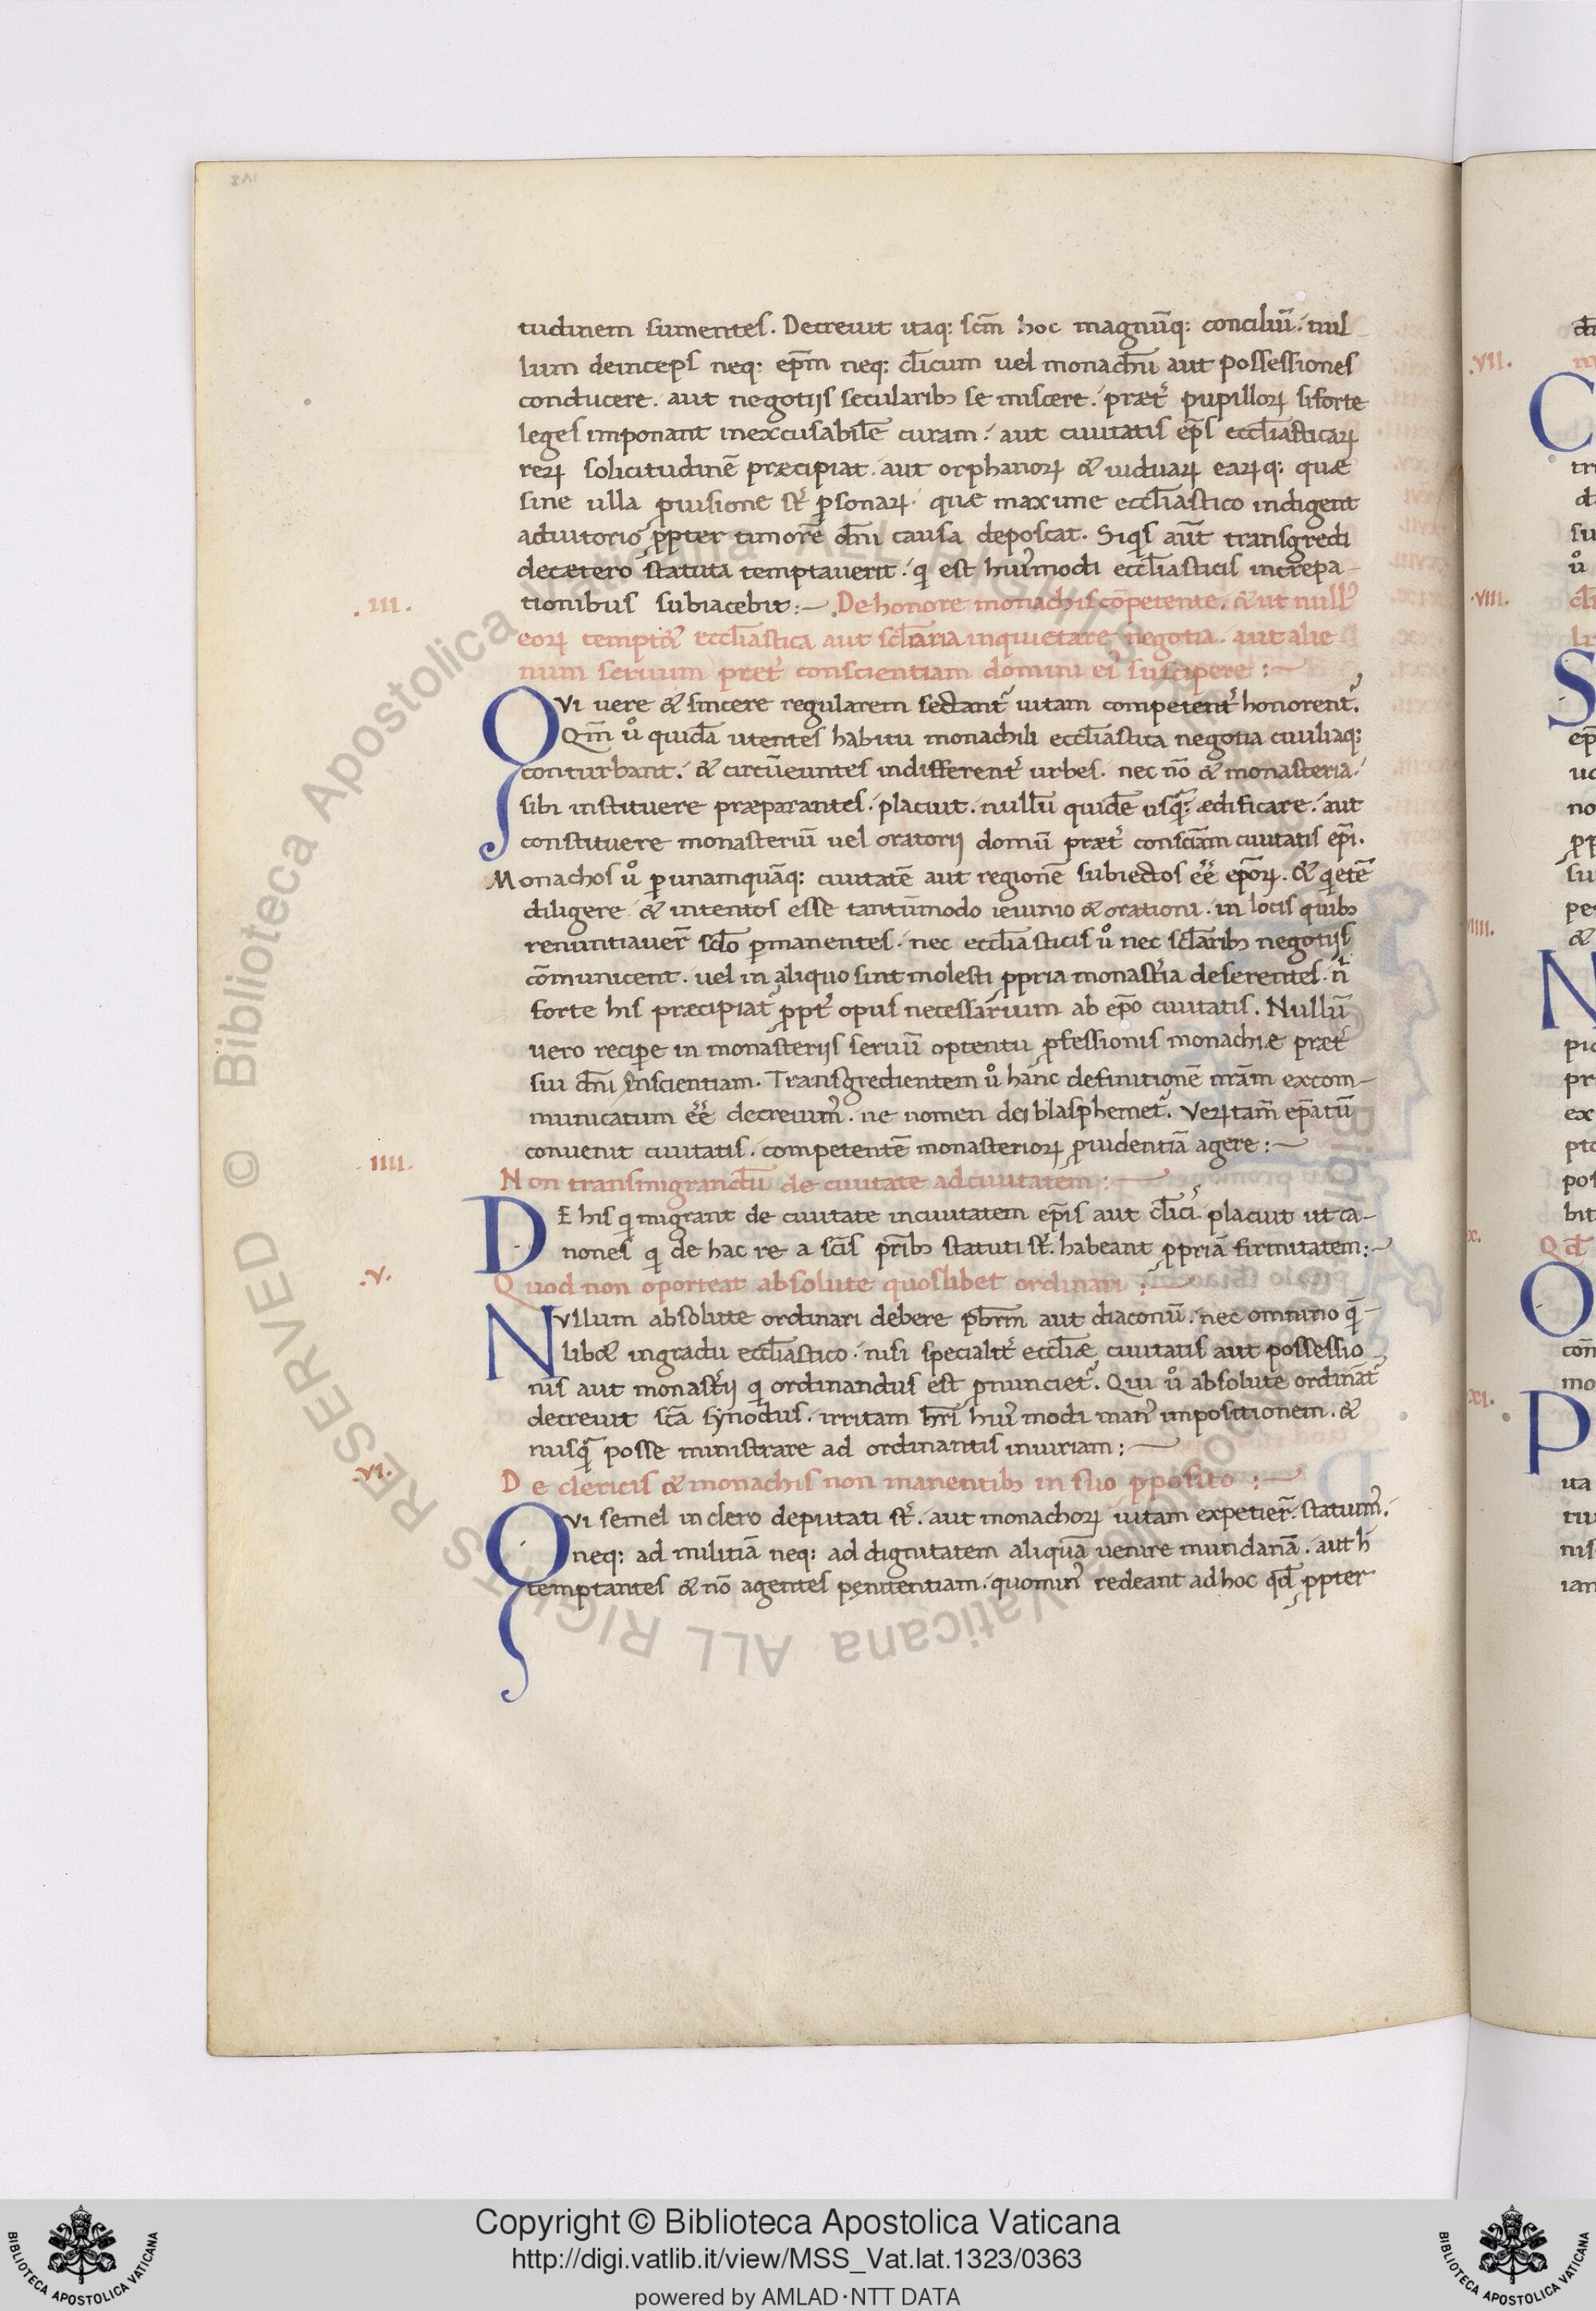 tudinem sumentes. Decreuit itaq: scm̄ hoc magnūq: conciliū. nul
lum deinceps neq: epm̄ neq: cl̄icum uel monachū aut possessiones
conducere. aut negotiis secularibꝰ se miscere. præt̄ pupilloꝝ siforte
leges imponant inexcusabilē curam. aut ciuitatis ep̄s eccl̄iasticaꝝ
reꝝ solicitudinē præcipiat. aut orphanoꝝ & uiduaꝝ eaꝝq: quæ
sine ulla ꝓuisione st̄ ꝑsonaꝝ. quæ maxime eccl̄iastico indigent
adiutorio ꝓpter timorē dn̄i causa deposcat. Siqis aūt transgredi
decætero statuta temptauerit. q̇ est hui᾽modi eccl̄iasticis increpa-
.III. tionibus subiacebit:— De honore monachis cōpetente. & ut null᾽
eoꝝ tempt& eccl̄iastica aut scl̄aria inquietare negotia. aut alie
num seruum præt̄ conscientiam domini ei᾽ suscipere:—
QVi uere & sincere regularem sectant᾽ uitam competent̄ honorent᾽.
Qm̄ ů quidā utentes habitu monachili eccl̄iastica negotia ciuiliaq:
conturbant. & circūeuntes indifferent̄ urbes. nec nō & monasteria
sibi instituere præparantes. placuit. nullū quidē usq̄: ædificare. aut
constituere monasteriū uel oratorii domū præt̄ consciām ciuitatis epi̅.
Monachos ů ꝑ unamquāq: ciuitatē aut regionē subiectos eē̄ epōꝝ. & q̇etē
diligere & intentos esse tantūmodo ieiunio & orationi. in locis quibꝰ
renuntiauer̄ scl̄o ꝑmanentes. nec eccl̄iasticis ů nec scl̄aribꝰ negotiis
cōmunicent. uel in aliquo sint molesti ꝓpria monast̄ia deserentes. n̄
forte his præcipiat᾽ ꝓpt̄ opus necessarium ab epō ciuitatis. Nullū
uero recipe in monasteriis seruū optentu ꝓfessionis monachiæ præt̄
sui dn̄i inscientiam. Transgredientem ů hanc definitionē nr̄am excom-
municatum eē̄ decreuim᾽. ne nomen dei blasphemet᾽. Veꝝtam̄ epatū̄
conuenit ciuitatis. competentē monasterioꝝ ꝓuidentiā agere:—
.IIII. Non transmigrandū de ciuitate adciuitatem:—
DE his q̇ migrant de ciuitate inciuitatem ep̄is aut cl̄ici᾽ placuit ut ca-
nones q̇ de hac re a sc̄is pr̄ibꝰ statuti st̄. habeant ꝓpriā firmitatem:—
.V. Quod non oporteat absolute quoslibet ordinari:—
NVllum absolute ordinari debere pbr̄m aut diaconū. nec omnino q̄-
lib& ingradu eccl̄iastico. nisi specialit̄ eccl̄iæ ciuitatis aut possessio
nis aut monast̄ii q̇ ordinandus est ꝓnunciet᾽. Qui ů absolute ordinat᾽
decreuit sc̄a synodus. irritam hr̄i hui᾽modi man᾽ impositionem. &
nusq̄ posse ministrare ad ordinantis iniuriam:—
.VI. De clericis & monachis non manentibꝰ in suo ꝓposito:—
QVi semel in clero deputati st̄. aut monachoꝝ uitam expetier̄. statuim᾽.
neq: ad militiā neq: ad dignitatem aliquā uenire mundanā. aut h̄
temptantes & nō agentes pęnitentiam. quomin᾽ redeant ad hoc qd̄ ꝓpter
.VII.
.VIII.
.VIIII.
.X.
.XI.
© Biblioteca Apostolica Vaticana ALL RIGHTS RESERVED
Copyright © Biblioteca Apostolica Vaticana
http://digi.vatlib.it/view/MSS_Vat.lat.1323/0363
powered by AMLAD·NTT DATA
BIBLIOTECA APOSTOLICA VATICANA
BIBLIOTECA APOSTOLICA VATICANA